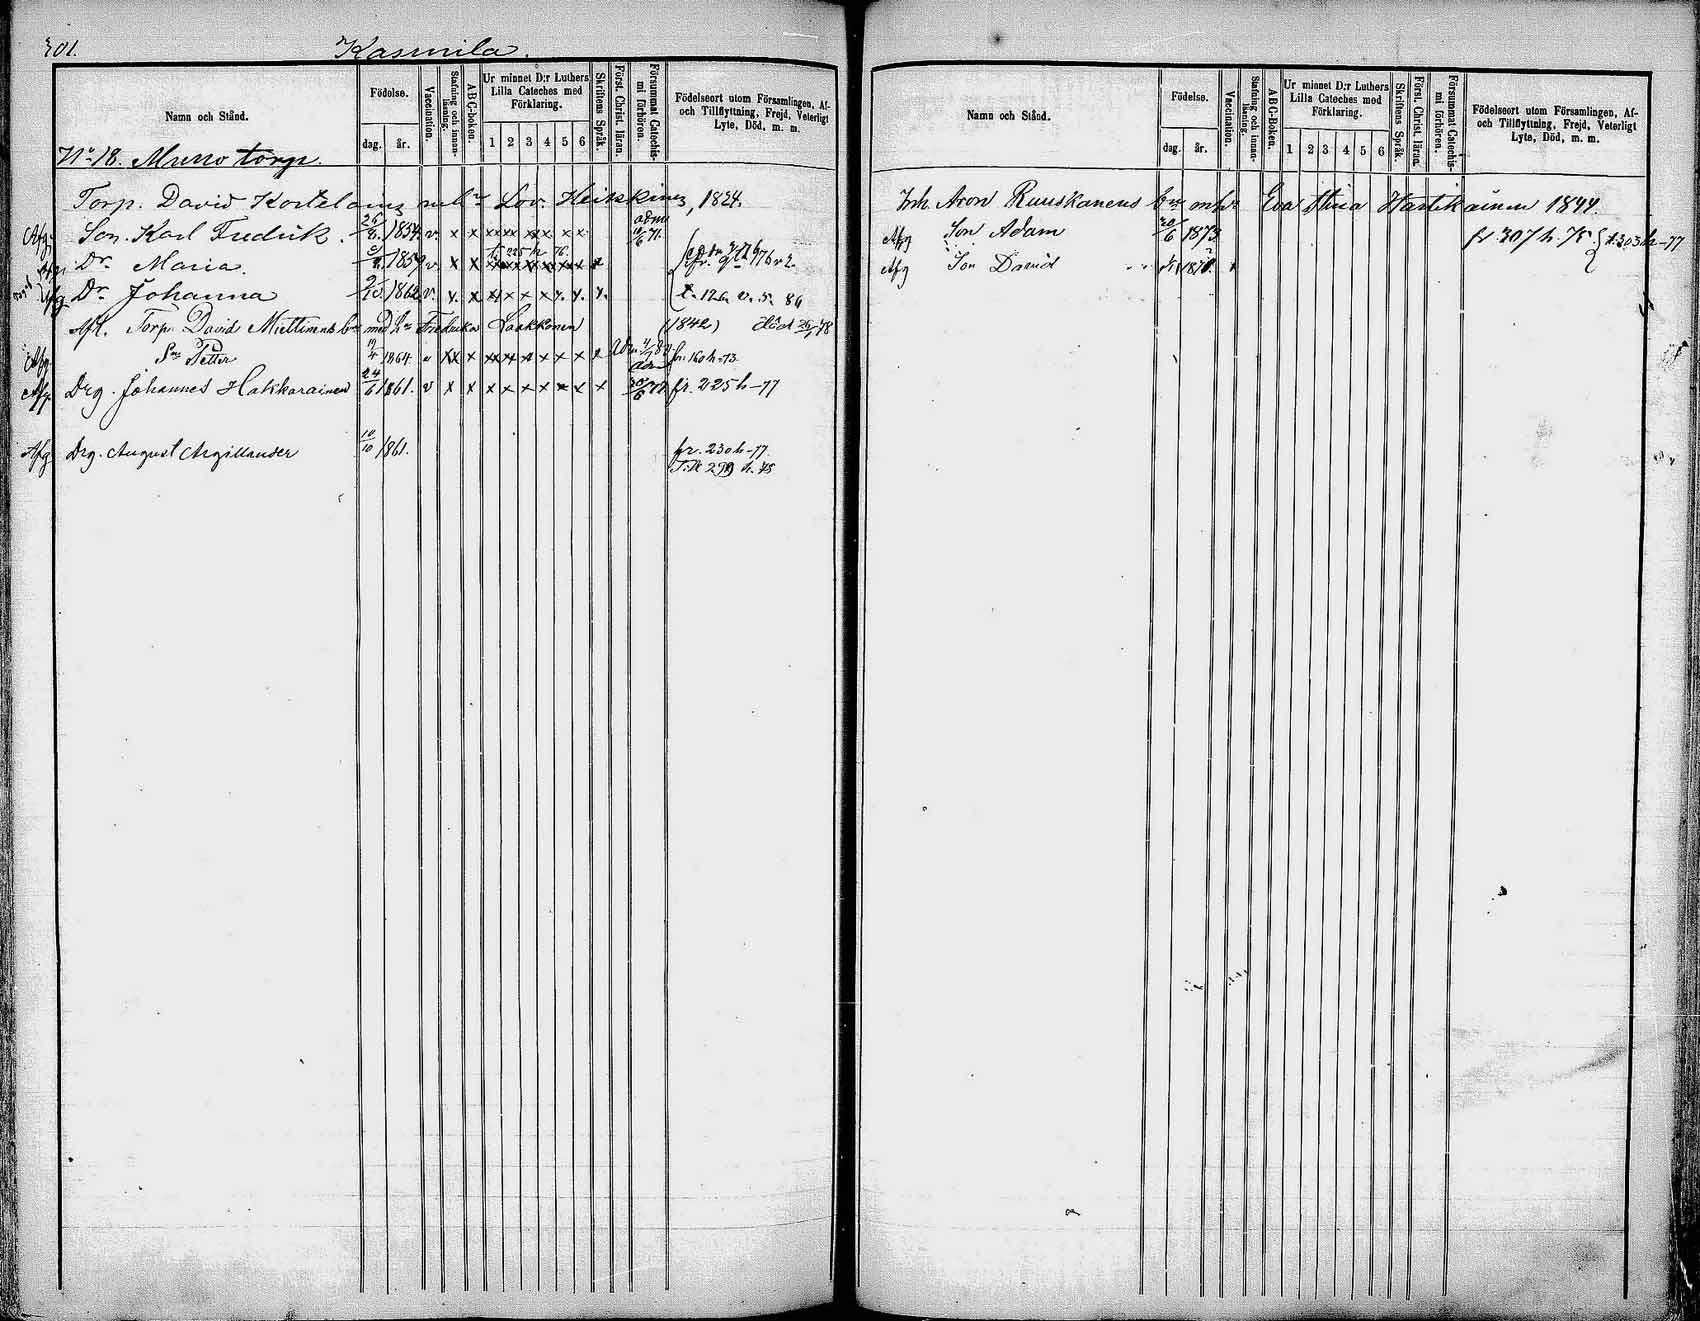 301.
Kasurila.
Namn och Stånd.
Födelse.
dag. år.
Vaccination.
Stafning och innanläsning.
ABC-boken.
Ur minnet D:r Luthers
Lilla Cateches med
Förklaring.
1 2 3 4 5 6
Skriftens Språk.
Först. Christ. läran.
Försummat Catechismi förhören.
Födelseort utom Församlingen, Af-
och Tillflyttning, Frejd, Veterligt
Lyte, Död, m. m.
No 18. Murro torp.
Torp. David Kortelainens Lov. Heiskinen, 1824.
Afg. Son. Karl Fredrik. 26/8. 1854. v. x x xx xx xx x x x adm 71.
Dr Maria. 1859 v. x x 225 h 76.
Dr Johanna 1862 v. x. x t. 126 v. 5. 86
Afl. Torp. David Miettinens med Fredrika Laakkonen (1842) död 26/1 78
Afg Sn Petter 19/4 1864 fr. 160 h-73
Afg Drg. Johannes Hakkarainen 24/6 1861. v x x x x x x x x x fr. 225 h-77
Afg Drg. August Argillander 10/10 1861. fr. 230 h-77
Namn och Stånd.
Födelse.
dag. år.
Vaccination.
Stafning och innanläsning.
ABC-Boken.
Ur minnet D:r Luthers
Lilla Cateches med
Förklaring.
1 2 3 4 5 6
Skriftens Språk.
Först. Christ. läran.
Försummat Catechismi förhören.
Födelseort utom Församlingen, Af-
och Tillflyttning, Frejd, Veterligt
Lyte, Död, m. m.
Inh. Aron Ruuskanens Eva Stina Hartikainen 1844.
Afg Son Adam 20/6 1873. fr. 307 h. 75. t. 303 h-77
Afg Son David